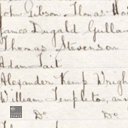 John Gibson Thomas Ha
James Dugald Gulla
Thomas Stevenson
Adam Tait
Alexander Kent Wrigh
William Templeton, and
Do Do